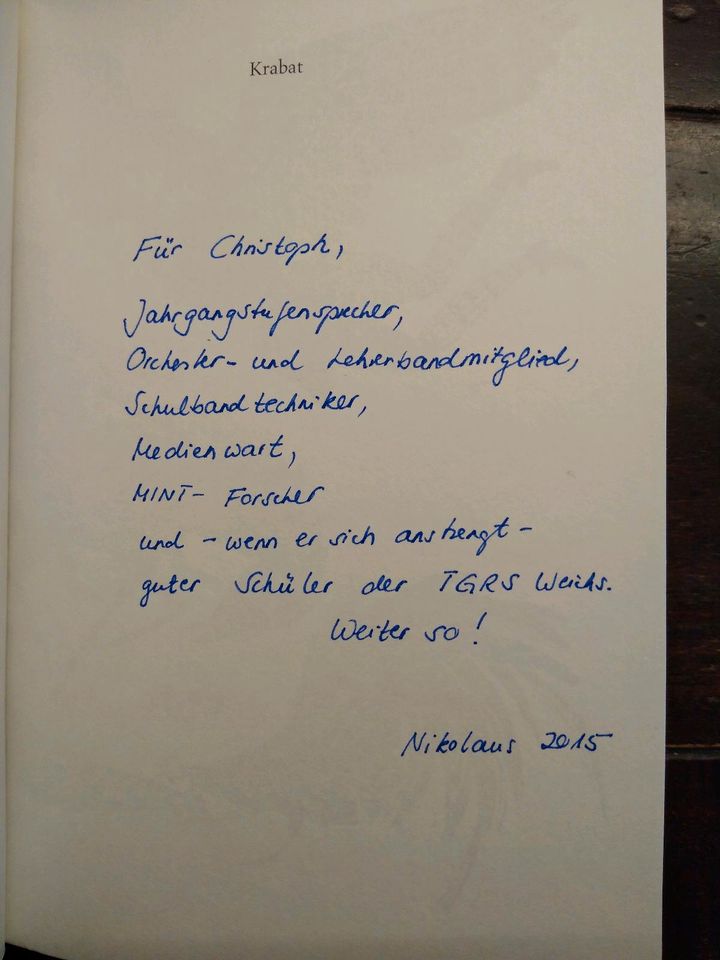 Krabat
Für Christoph,
Jahrgangstufensprecher,
Orchester- und Lehrerbandmitglied,
Schulbandtechniker,
Medienwart,
MINT- Forscher
und - wenn er sich anstrengt -
guter Schüler der TGRS Weichs.
Weiter so!
Nikolaus 2015